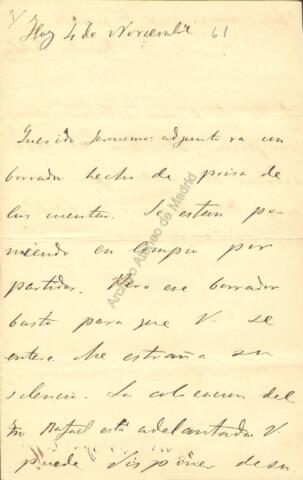 Hoy 4 de Noviembre 61
Querido Jeronimo: adjunto va un
borrador hecho de prisa de
las cuentas. Se estan po-
niendo en limpio por
partidas. Pero ese borrador
basta para que V. se
entere. Me estraña su
silencio. La colocacion del
Sn Rafael está adelantada. V.
puede disponer de su
Archivo Ateneo de Madrid